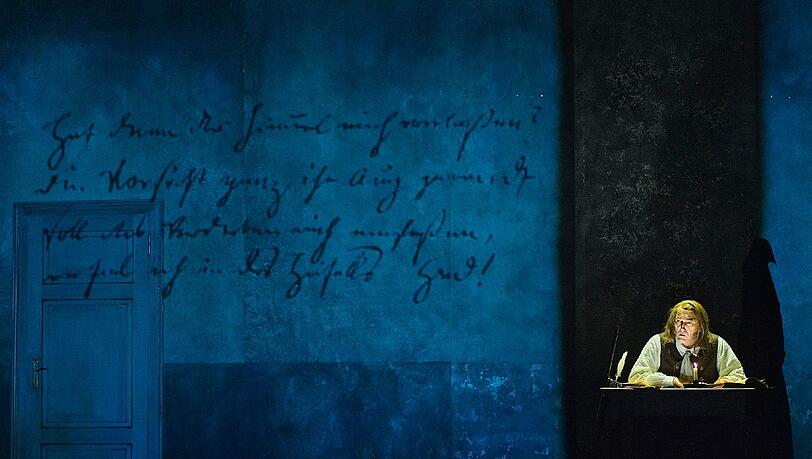 Hat denn der Himmel mich verlaßen?
die Vorsicht ganz ihr Aug gewandt
soll das Verderben mich erfaßen,
verfiel ich in des Zufalls Hand!